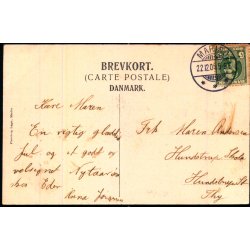 BREVKORT.
(CARTE POSTALE)
DANMARK.
22.12.0
Kære Maren
En rigtig glædelig
Jul og et godt og
velsignet Nytaar
Eder
Anna
Frk Maren Andersen
Hundstrup
Hundstrup St
Thy